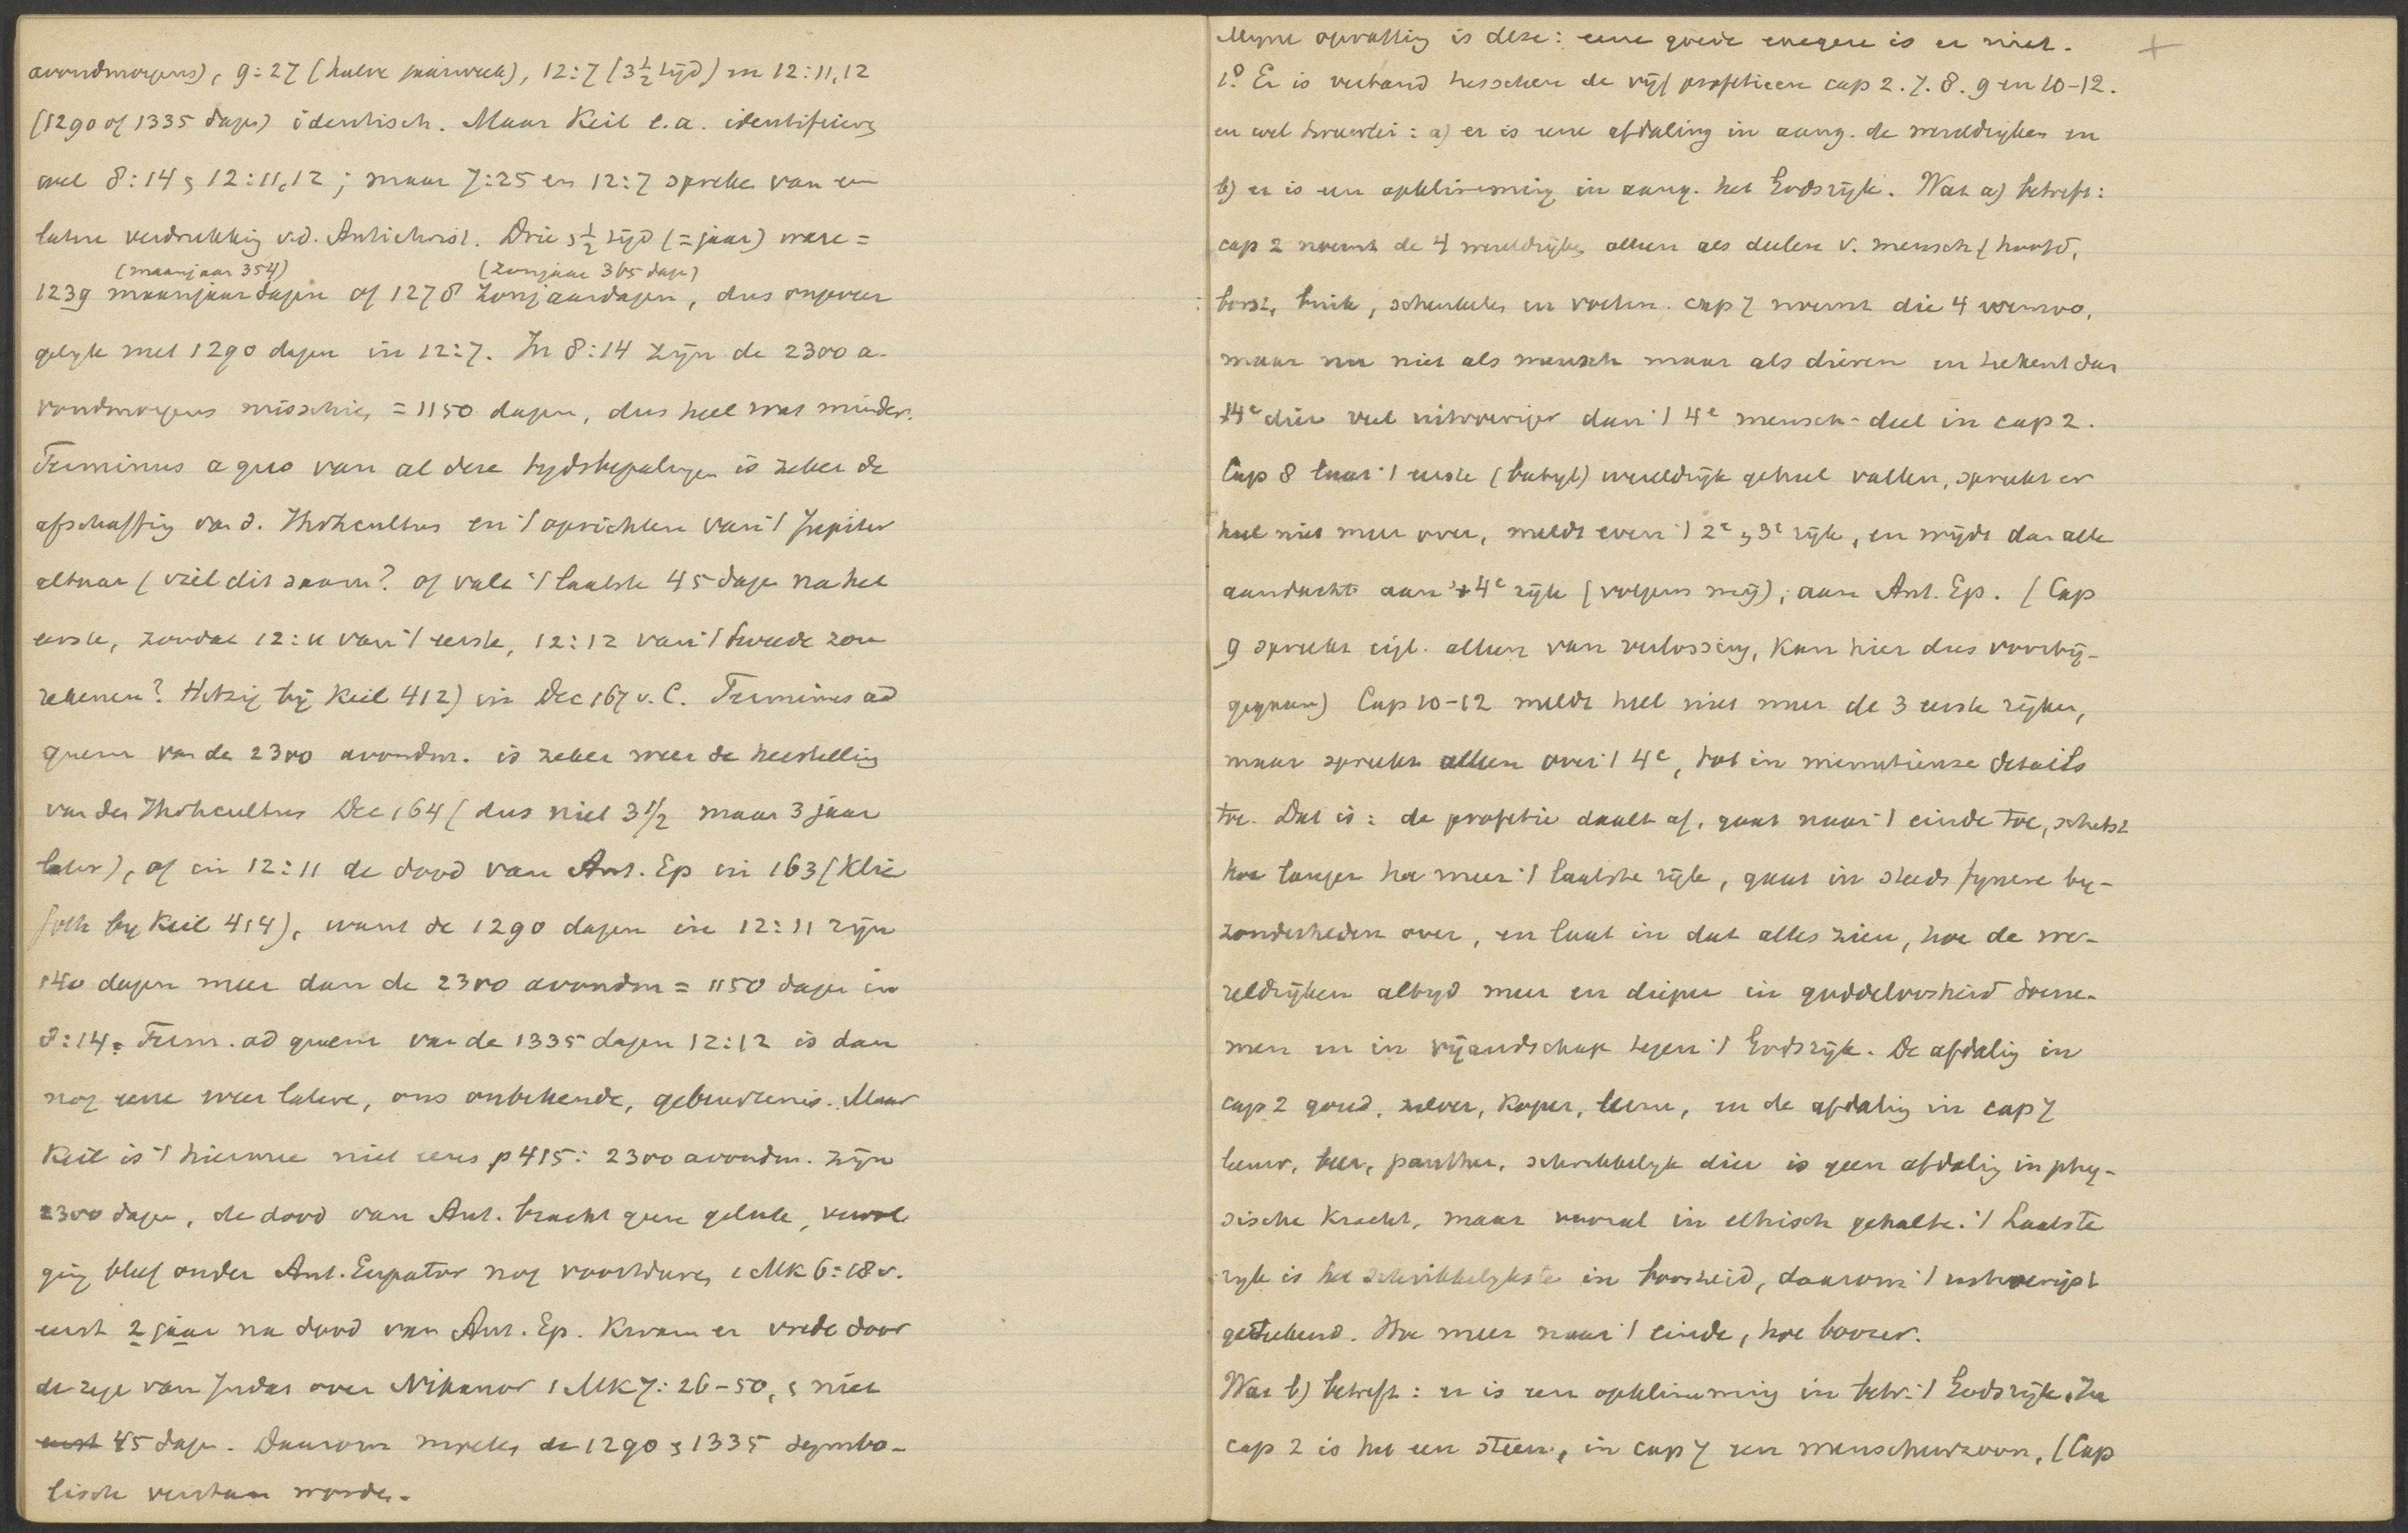 avondmorgens), 9:27 (halve jaarweek), 12:7 (3½ tijd) en 12:11,12
(1290 of 1335 dagen) identisch. Maar Keil e.a. identificeeren
wel 8:14 & 12:11,12; maar 7:25 en 12:7 spreken van een
latere verdrukking v.d. Antichrist. Drie & ½ tijd (= jaar) ware =
(maanjaar 354) (zonjaar 365 dagen)
1239 maanjaardagen of 1278 zonjaardagen, dus ongeveer
gelijk met 1290 dagen in 12:7. In 8:14 zijn de 2300 a-
vondmorgens misschien = 1150 dagen, dus heel wat minder.
Terminus a quo van al deze tydsbepalingen is zeker de
afschaffing van d. Jhvhcultus en 't oprichten van 't Jupiter
altaar (viel dit saam? of valt 't laatste 45 dagen na het
eerste, zoodat 12:11 van 't eerste, 12:12 van 't tweede zou
rekenen? Hitzig bij Keil 412) in Dec 167 v.C. Terminus ad
quem van de 2300 avondm. is zeker weer de herstelling
van den Jhvhcultus Dec 164 (dus niet 3½ maar 3 jaar
later), of in 12:11 de dood van Ant. Ep in 163 (Klie
foth by Keil 414), want de 1290 dagen in 12:11 zijn
140 dagen meer dan de 2300 avondm = 1150 dagen in
8:14. Term. ad quem van de 1335 dagen 12:12 is dan
nog eene weer latere, ons onbekende, gebeurtenis. Maar
Keil is 't hiermee niet eens p 415: 2300 avondm. zijn
2300 dagen, de dood van Ant. bracht geen geluk, vervol
ging bleef onder Ant. Eupator nog voortduren 1 Mk 6:18v.
eerst 2 jaar na dood van Ant. Ep. kwam er vrede door
de zege van Judas over Nikanor 1 Mk 7:26-50, & niet
eerst 45 dagen. Daarom moeten de 1290 & 1335 symbo-
lisch verstaan worden.
Mijne opvatting is deze: eene goede exegese is er niet. +
1.° Er is verband tusschen de vijf profetieen cap 2. 7. 8. 9 en 10-12.
en wel tweeërlei: a) er is eene afdaling in aang. de wereldrijken en
b) er is een opklimming in aang. het Godsrijk. Wat a) betreft:
cap 2 noemt de 4 wereldrijken alleen als deelen v. mensch (hoofd,
borst, buik, schenkels en voeten. cap 7 noemt die 4 evenzoo,
maar nu niet als mensch maar als dieren en tekent dan
't 4e dier veel uitvoeriger dan 't 4e mensch-deel in cap 2.
Cap 8 laat 't eerste (babyl) wereldrijk geheel vallen, spreekt er
heel niet meer over, meldt even 't 2e & 3e rijk, en wijdt dan alle
aandacht aan 't 4e rijk (volgens mij), aan Ant. Ep. (Cap
9 spreekt eigl. alleen van verlossing, kan hier dus voorbij-
gegaan) Cap 10-12 meldt heel niet meer de 3 eerste rijken,
maar spreekt alleen over 't 4e, tot in minutieuze details
toe. Dat is: de profetie daalt af, gaat naar 't einde toe, schetst
hoe langer hoe meer 't laatste rijk, gaat in steeds fynere by-
zonderheden over, en laat in dat alles zien, hoe de we-
reldrijken altyd meer en dieper in goddeloosheid toene-
men en in vijandschap tegen 't Godsrijk. De afdaling in
cap 2 goud, zilver, koper, leem, en de afdaling in cap 7
leeuw, beer, panther, schrikkelyk dier is geen afdaling in phy-
sische kracht, maar vooral in ethisch gehalte. 't Laatste
ryk is het schrikkelykste in boosheid, daarom 't uitvoerigst
getekend. Hoe meer naar 't einde, hoe boozer.
Wat b) betreft: er is een opklimming in betr. 't Godsrijk. In
cap 2 is het een steen, in cap 7 een menschenzoon, (Cap